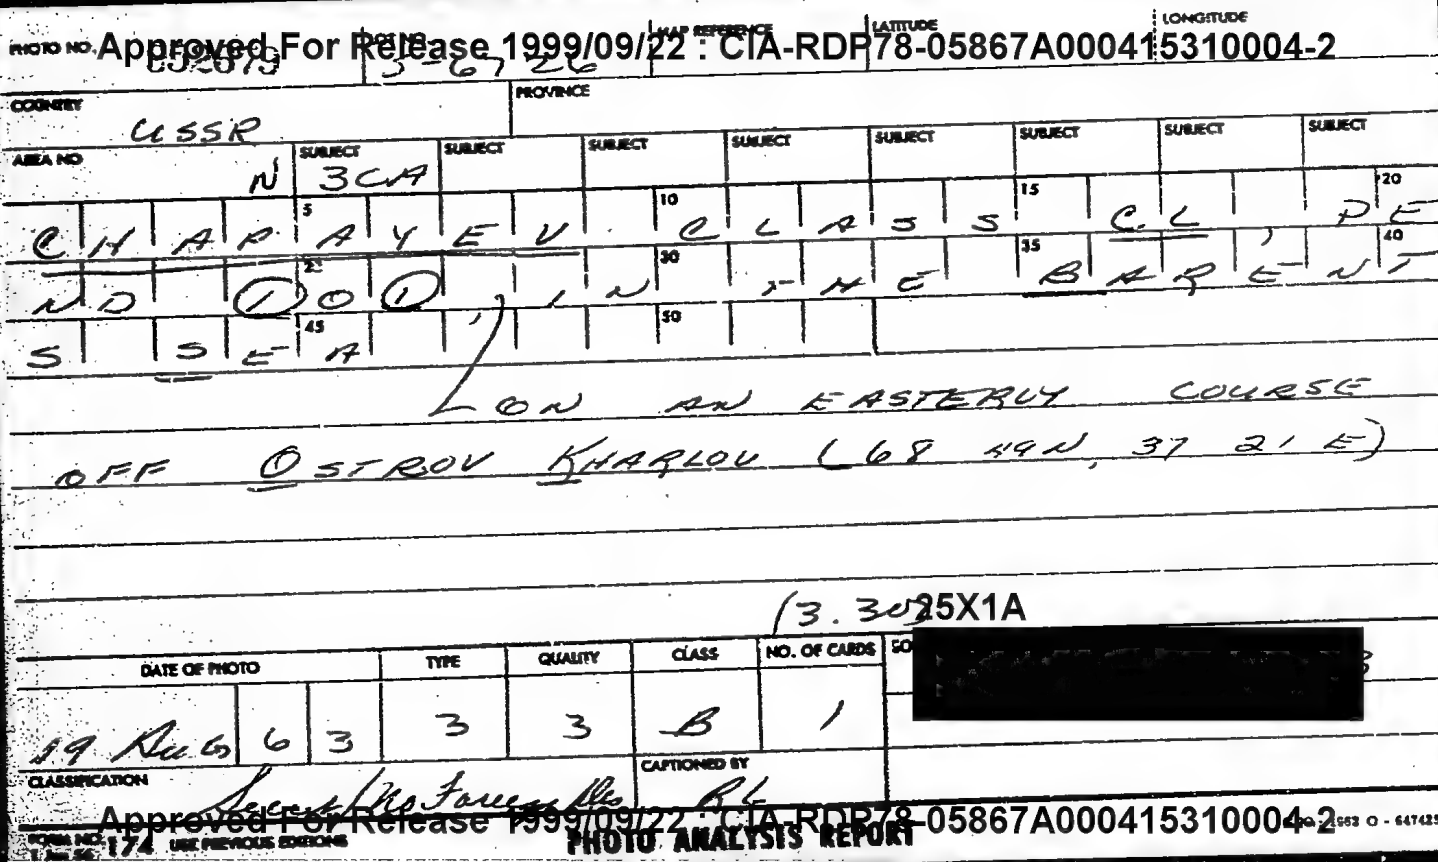 PHOTO NO. MAP REFERENCE LATITUDE LONGITUDE
Approved For Release 1999/09/22 : CIA-RDP78-05867A000415310004-2
COUNTRY PROVINCE
USSR
AREA NO SUBJECT SUBJECT SUBJECT SUBJECT SUBJECT SUBJECT SUBJECT SUBJECT
N 3CA
5 10 15 20
CHAPAYEV CLASS CL, PE
25 30 35 40
ND 101, IN THE BARENT
45 50
S SEA
ON AN EASTERLY COURSE
OFF OSTROV KHARLOV (68 49N, 37 21 E)
25X1A
DATE OF PHOTO TYPE QUALITY CLASS NO. OF CARDS
19 Aug 63 3 3 B 1
CLASSIFICATION CAPTIONED BY
Secret/No Foreign Dis RL
Approved For Release 1999/09/22 : CIA-RDP78-05867A000415310004-2
FORM NO. 174 USE PREVIOUS EDITIONS PHOTO ANALYSIS REPORT